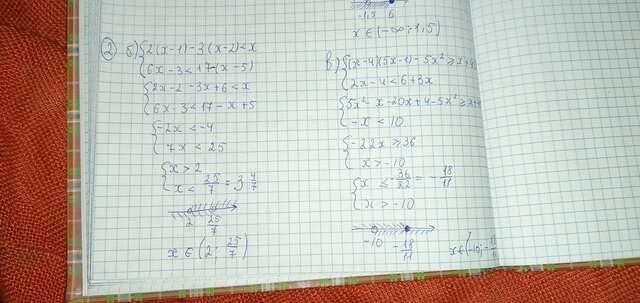 -1,5 6
x ∈ (-∞; 1,5)
2 б) { 2(x-1)-3(x-2)<x
{ 6x-3<17-(x-5)
{ 2x-2-3x+6<x
{ 6x-3<17-x+5
{ -2x<-4
{ 7x<25
{ x>2
{ x< 25/7 = 3 4/7
2 25/7
x ∈ (2; 25/7)
в) { (x-4)(5x-1)-5x²≥x+4
{ 2x-4<6+3x
{ 5x²-x-20x+4-5x²≥x+4
{ -x<10
{ -22x≥36
{ x>-10
{ x ≤ -36/22 = -18/11
{ x>-10
-10 -18/11
x ∈ (-10; -